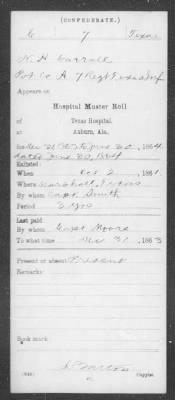 (CONFEDERATE.)
C 7 Texas
N. H. Carroll
Pvt. Co. A, 7 Regt Texas Inf.
Appears on
Hospital Muster Roll
of
Texas Hospital,
at
Auburn, Ala.
1864
dated June 30, 1864
Enlisted:
When Oct 2, 1861.
Where Marshall, Texas
By whom Capt. Smith
Period 3 yrs
Last paid:
By whom Capt Moore
To what time Dec 31, 1863
Present or absent Present
Remarks:
Book mark:
Copyist.